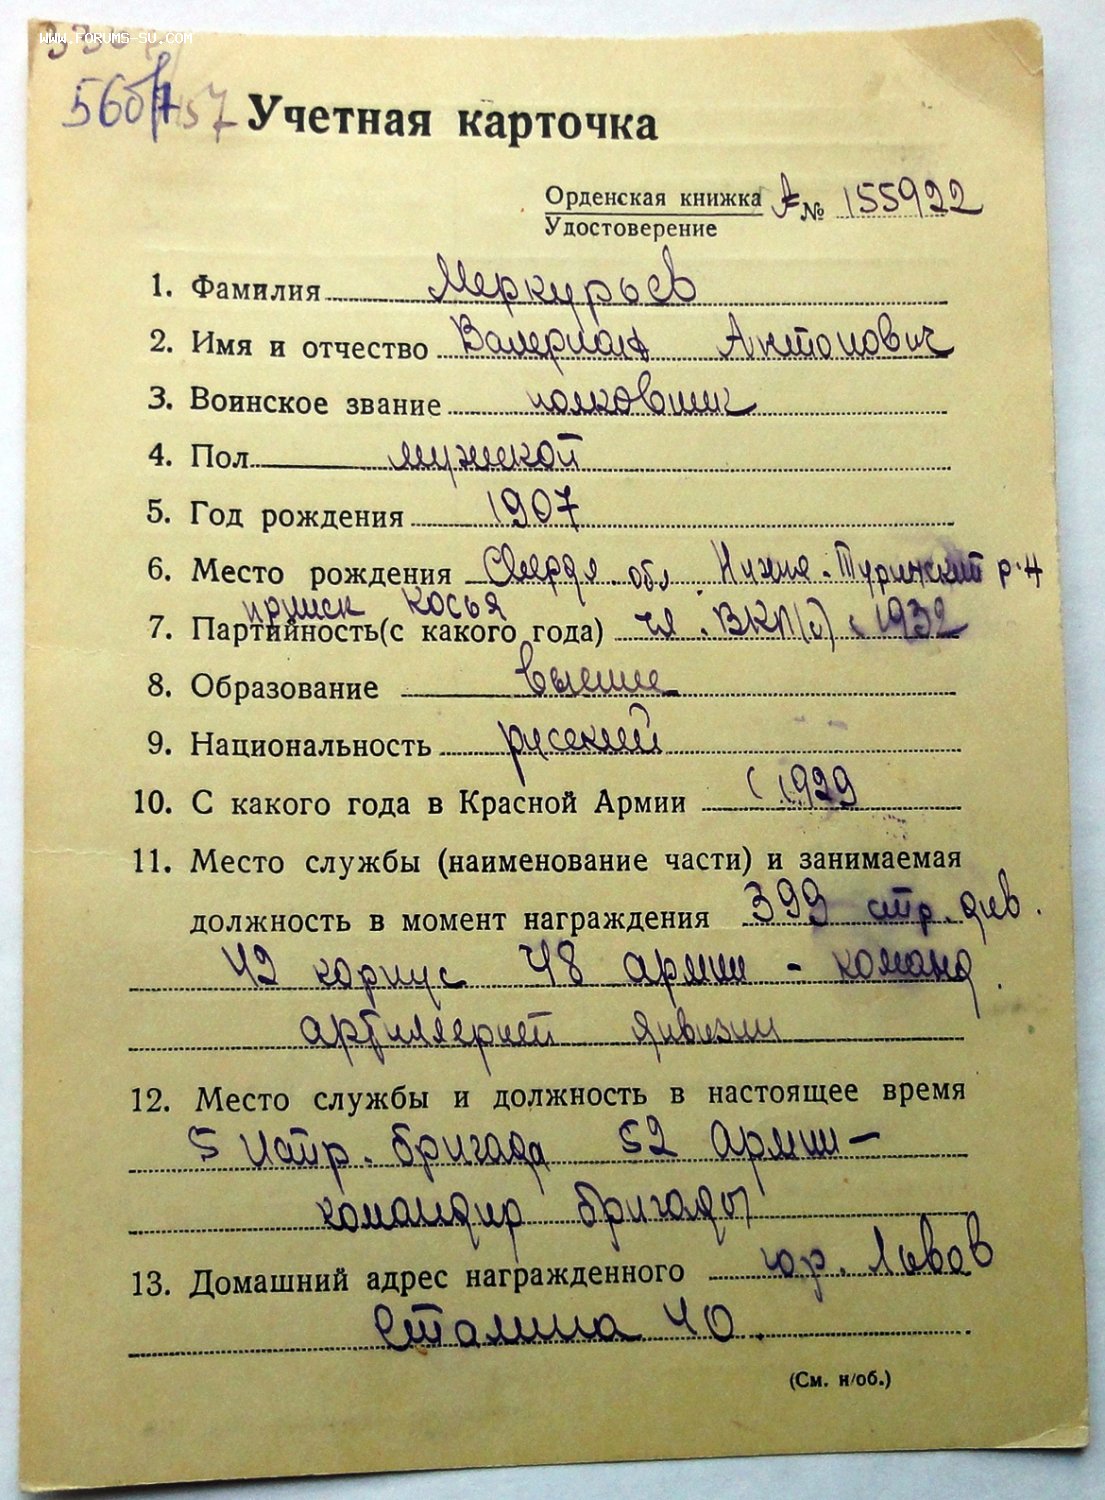 WWW.FORUMS-SU.COM
Учетная карточка
Орденская книжка А № 155922
Удостоверение
1. Фамилия Меркурьев
2. Имя и отчество Валериан Антонович
3. Воинское звание полковник
4. Пол мужской
5. Год рождения 1907
6. Место рождения Свердл. обл. Нижне-Туринский р-н
прииск Косья
7. Партийность (с какого года) чл. ВКП(б) с 1932
8. Образование высшее
9. Национальность русский
10. С какого года в Красной Армии с 1929
11. Место службы (наименование части) и занимаемая
должность в момент награждения 399 стр. див.
42 корпус 48 армии - команд.
артиллерией дивизии
12. Место службы и должность в настоящее время
5 Истр. бригада 52 Армии –
командир бригады
13. Домашний адрес награжденного гор. Львов
Сталина 40.
(См. н/об.)